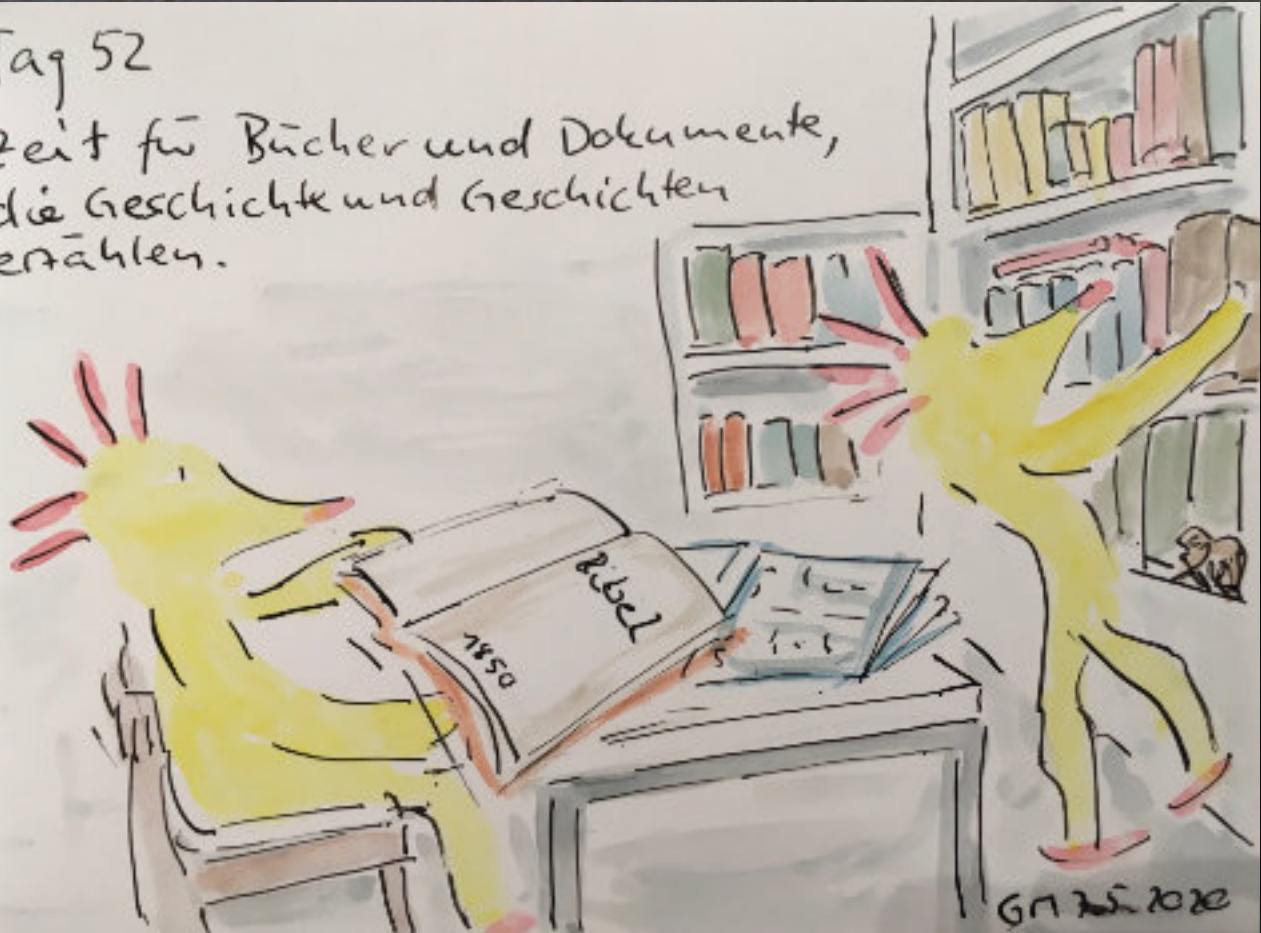 Tag 52
Zeit für Bücher und Dokumente,
die Geschichte und Geschichten
erzählen.
Bibel
1850
GM 7.5. 2020